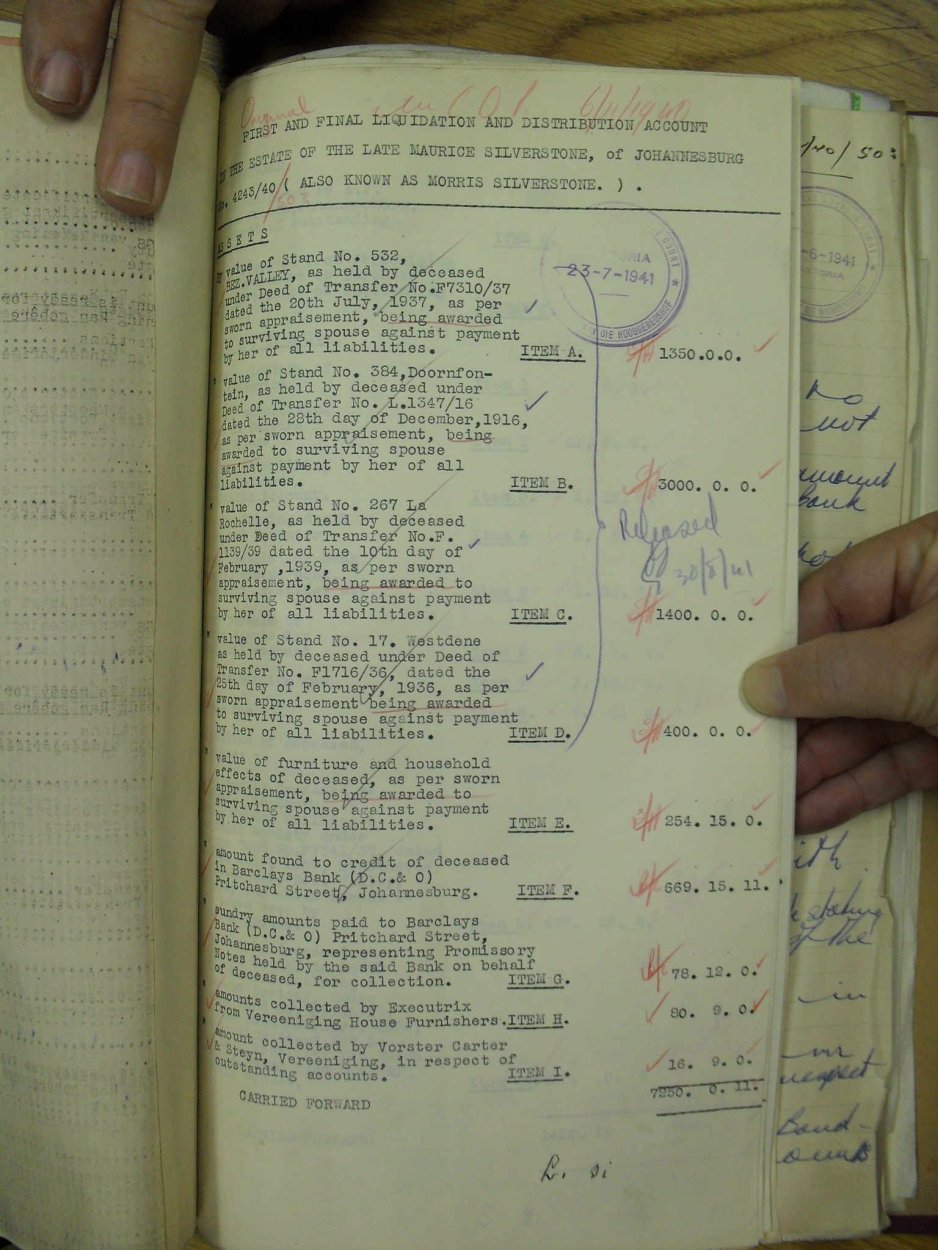 Original 6/11/1940
FIRST AND FINAL LIQUIDATION AND DISTRIBUTION ACCOUNT
IN THE ESTATE OF THE LATE MAURICE SILVERSTONE, of JOHANNESBURG
No. 4243/40 ( ALSO KNOWN AS MORRIS SILVERSTONE. ) .
ASSETS
23-7-1941
By value of Stand No. 532,
BEZ.VALLEY, as held by deceased
under Deed of Transfer No.F7310/37
dated the 20th July, 1937, as per
sworn appraisement, being awarded
to surviving spouse against payment
by her of all liabilities. ITEM A. 1350.0.0.
" value of Stand No. 384,Doornfon-
tein, as held by deceased under
Deed of Transfer No. L.1347/16
dated the 28th day of December,1916,
as per sworn appraisement, being
awarded to surviving spouse
against payment by her of all
liabilities. ITEM B. 3000. 0. 0.
" value of Stand No. 267 La
Rochelle, as held by deceased
under Deed of Transfer No.F.
1139/39 dated the 10th day of
February ,1939, as per sworn
appraisement, being awarded to
surviving spouse against payment
by her of all liabilities. ITEM C. 1400. 0. 0.
Released
30/8/41
" value of Stand No. 17. Westdene
as held by deceased under Deed of
Transfer No. F1716/36, dated the
25th day of February, 1936, as per
sworn appraisement being awarded
to surviving spouse against payment
by her of all liabilities. ITEM D. 400. 0. 0.
" value of furniture and household
effects of deceased, as per sworn
appraisement, being awarded to
surviving spouse against payment
by her of all liabilities. ITEM E. 254. 15. 0.
" amount found to credit of deceased
in Barclays Bank (D.C.& O)
Pritchard Street, Johannesburg. ITEM F. 669. 15. 11.
" sundry amounts paid to Barclays
Bank (D.C.& O) Pritchard Street,
Johannesburg, representing Promissory
Notes held by the said Bank on behalf
of deceased, for collection. ITEM G. 78. 12. 0.
" amounts collected by Executrix
from Vereeniging House Furnishers. ITEM H. 80. 9. 0.
" amount collected by Vorster Carter
& Steyn, Vereeniging, in respect of
outstanding accounts. ITEM I. 16. 9. 0.
7250. 0. 11.
CARRIED FORWARD
L. Si
-6-1941
not
amount
bank
of the
in
respect
Bond-